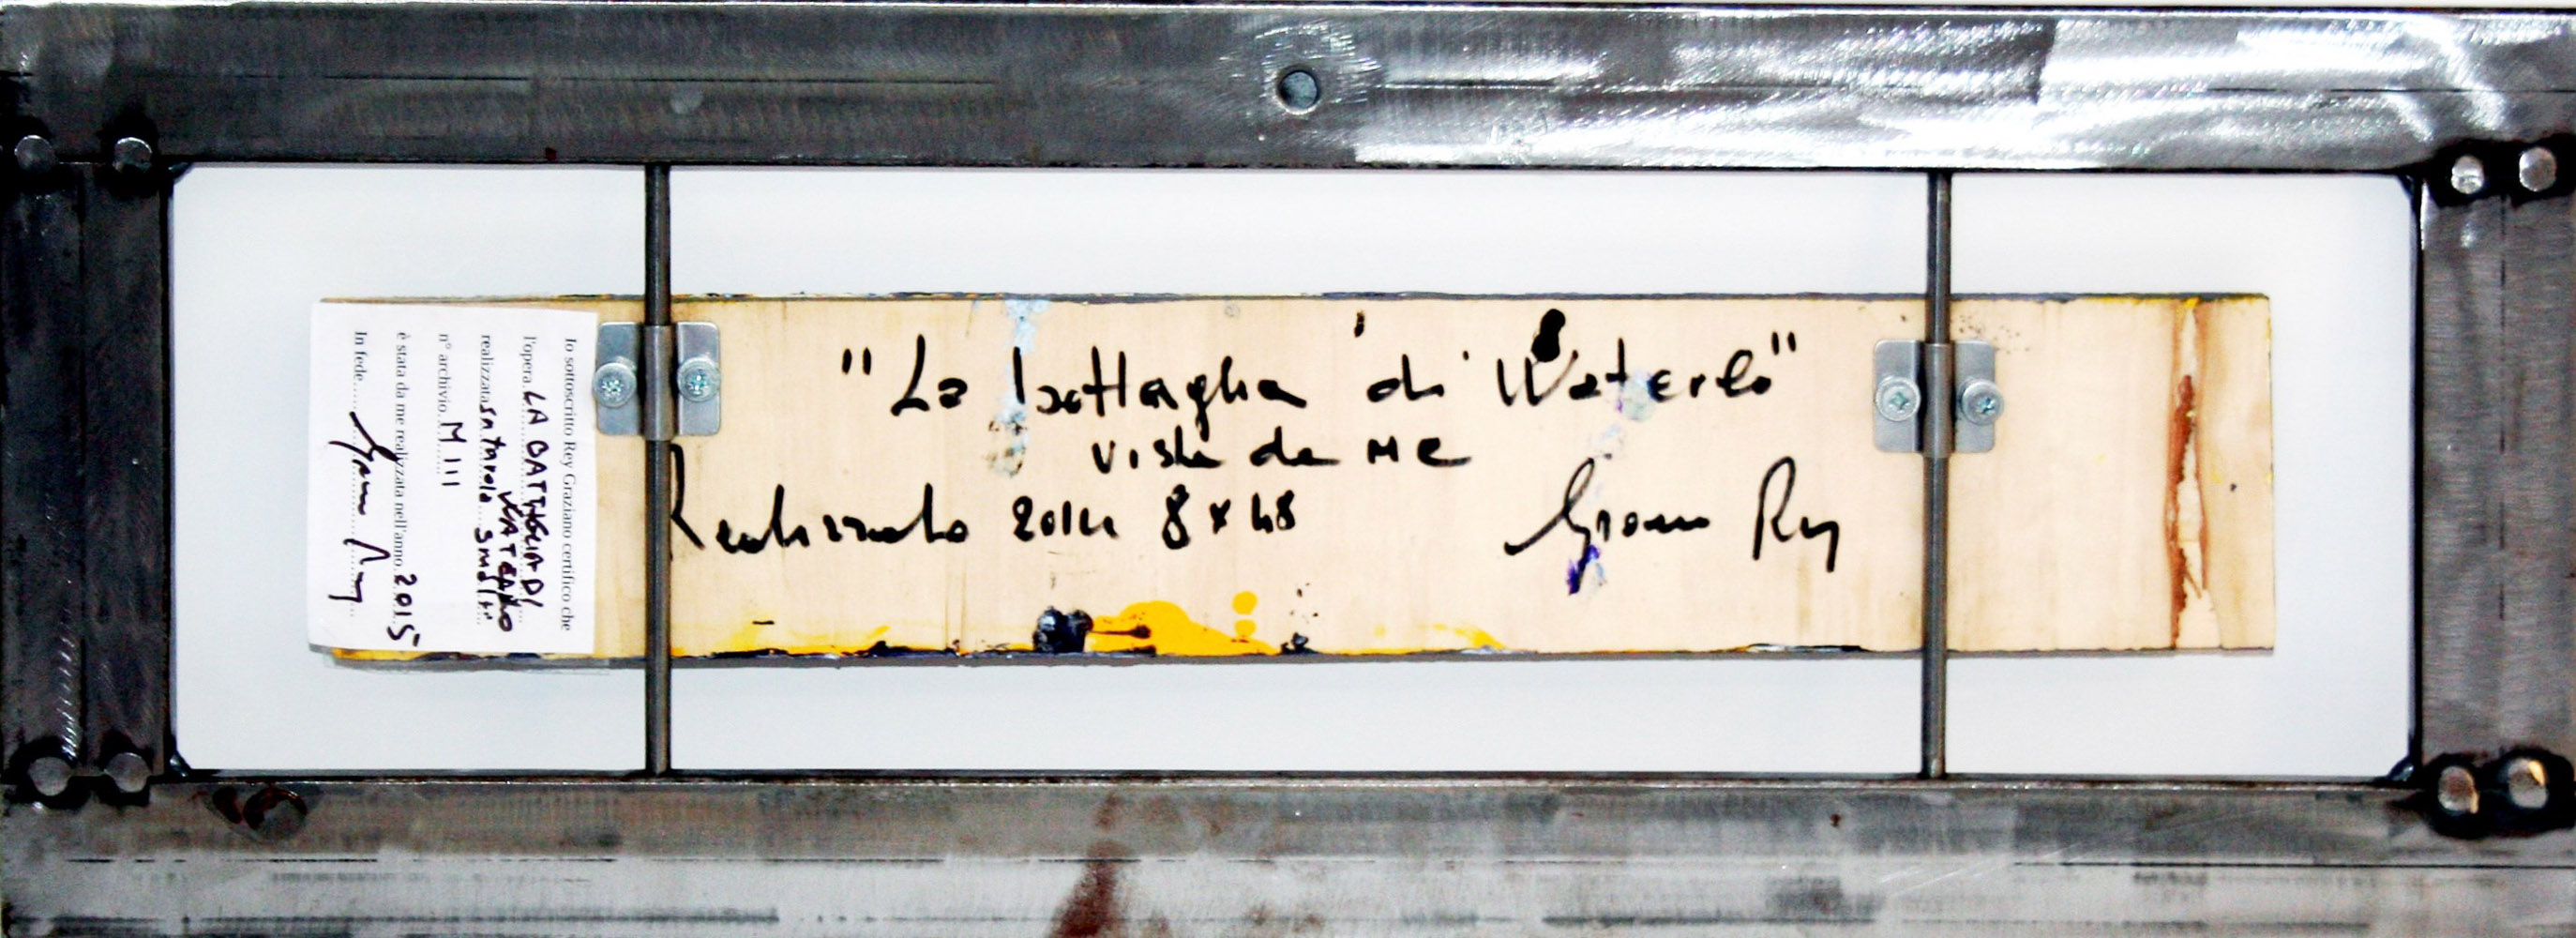 "La battaglia di Waterlò"
vista da ME
Realizzato 2014 8 x 48
Grano Rey
Io sottoscritto Rey Graziano certifico che
l'opera LA BATTAGLIA DI
WATERLOO
realizzata su tavola smalti
n° archivio M 111
è stata da me realizzata nell'anno 2015
In fede